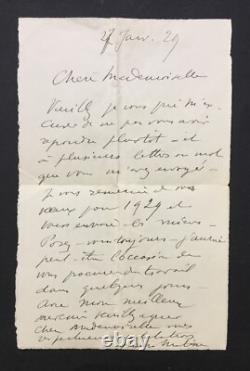 27 Janv. 29
Chere Mademoiselle
Veuillez je vous prie m'ex-
cuser de ne pas vous avoir
repondu plustot - et
à plusieurs lettres ou mot
que vous m'avez envoyé -
je vous remercie de vos
vœux pour 1929 et
vous envoie les miens -
Posez-vous toujours - j'aurai
peut-être l'occasion de
vous procurer du travail
dans quelques jours -
Avec mon meilleur
souvenir veuillez agréer
chere Mademoiselle mes
respectueuses salutations